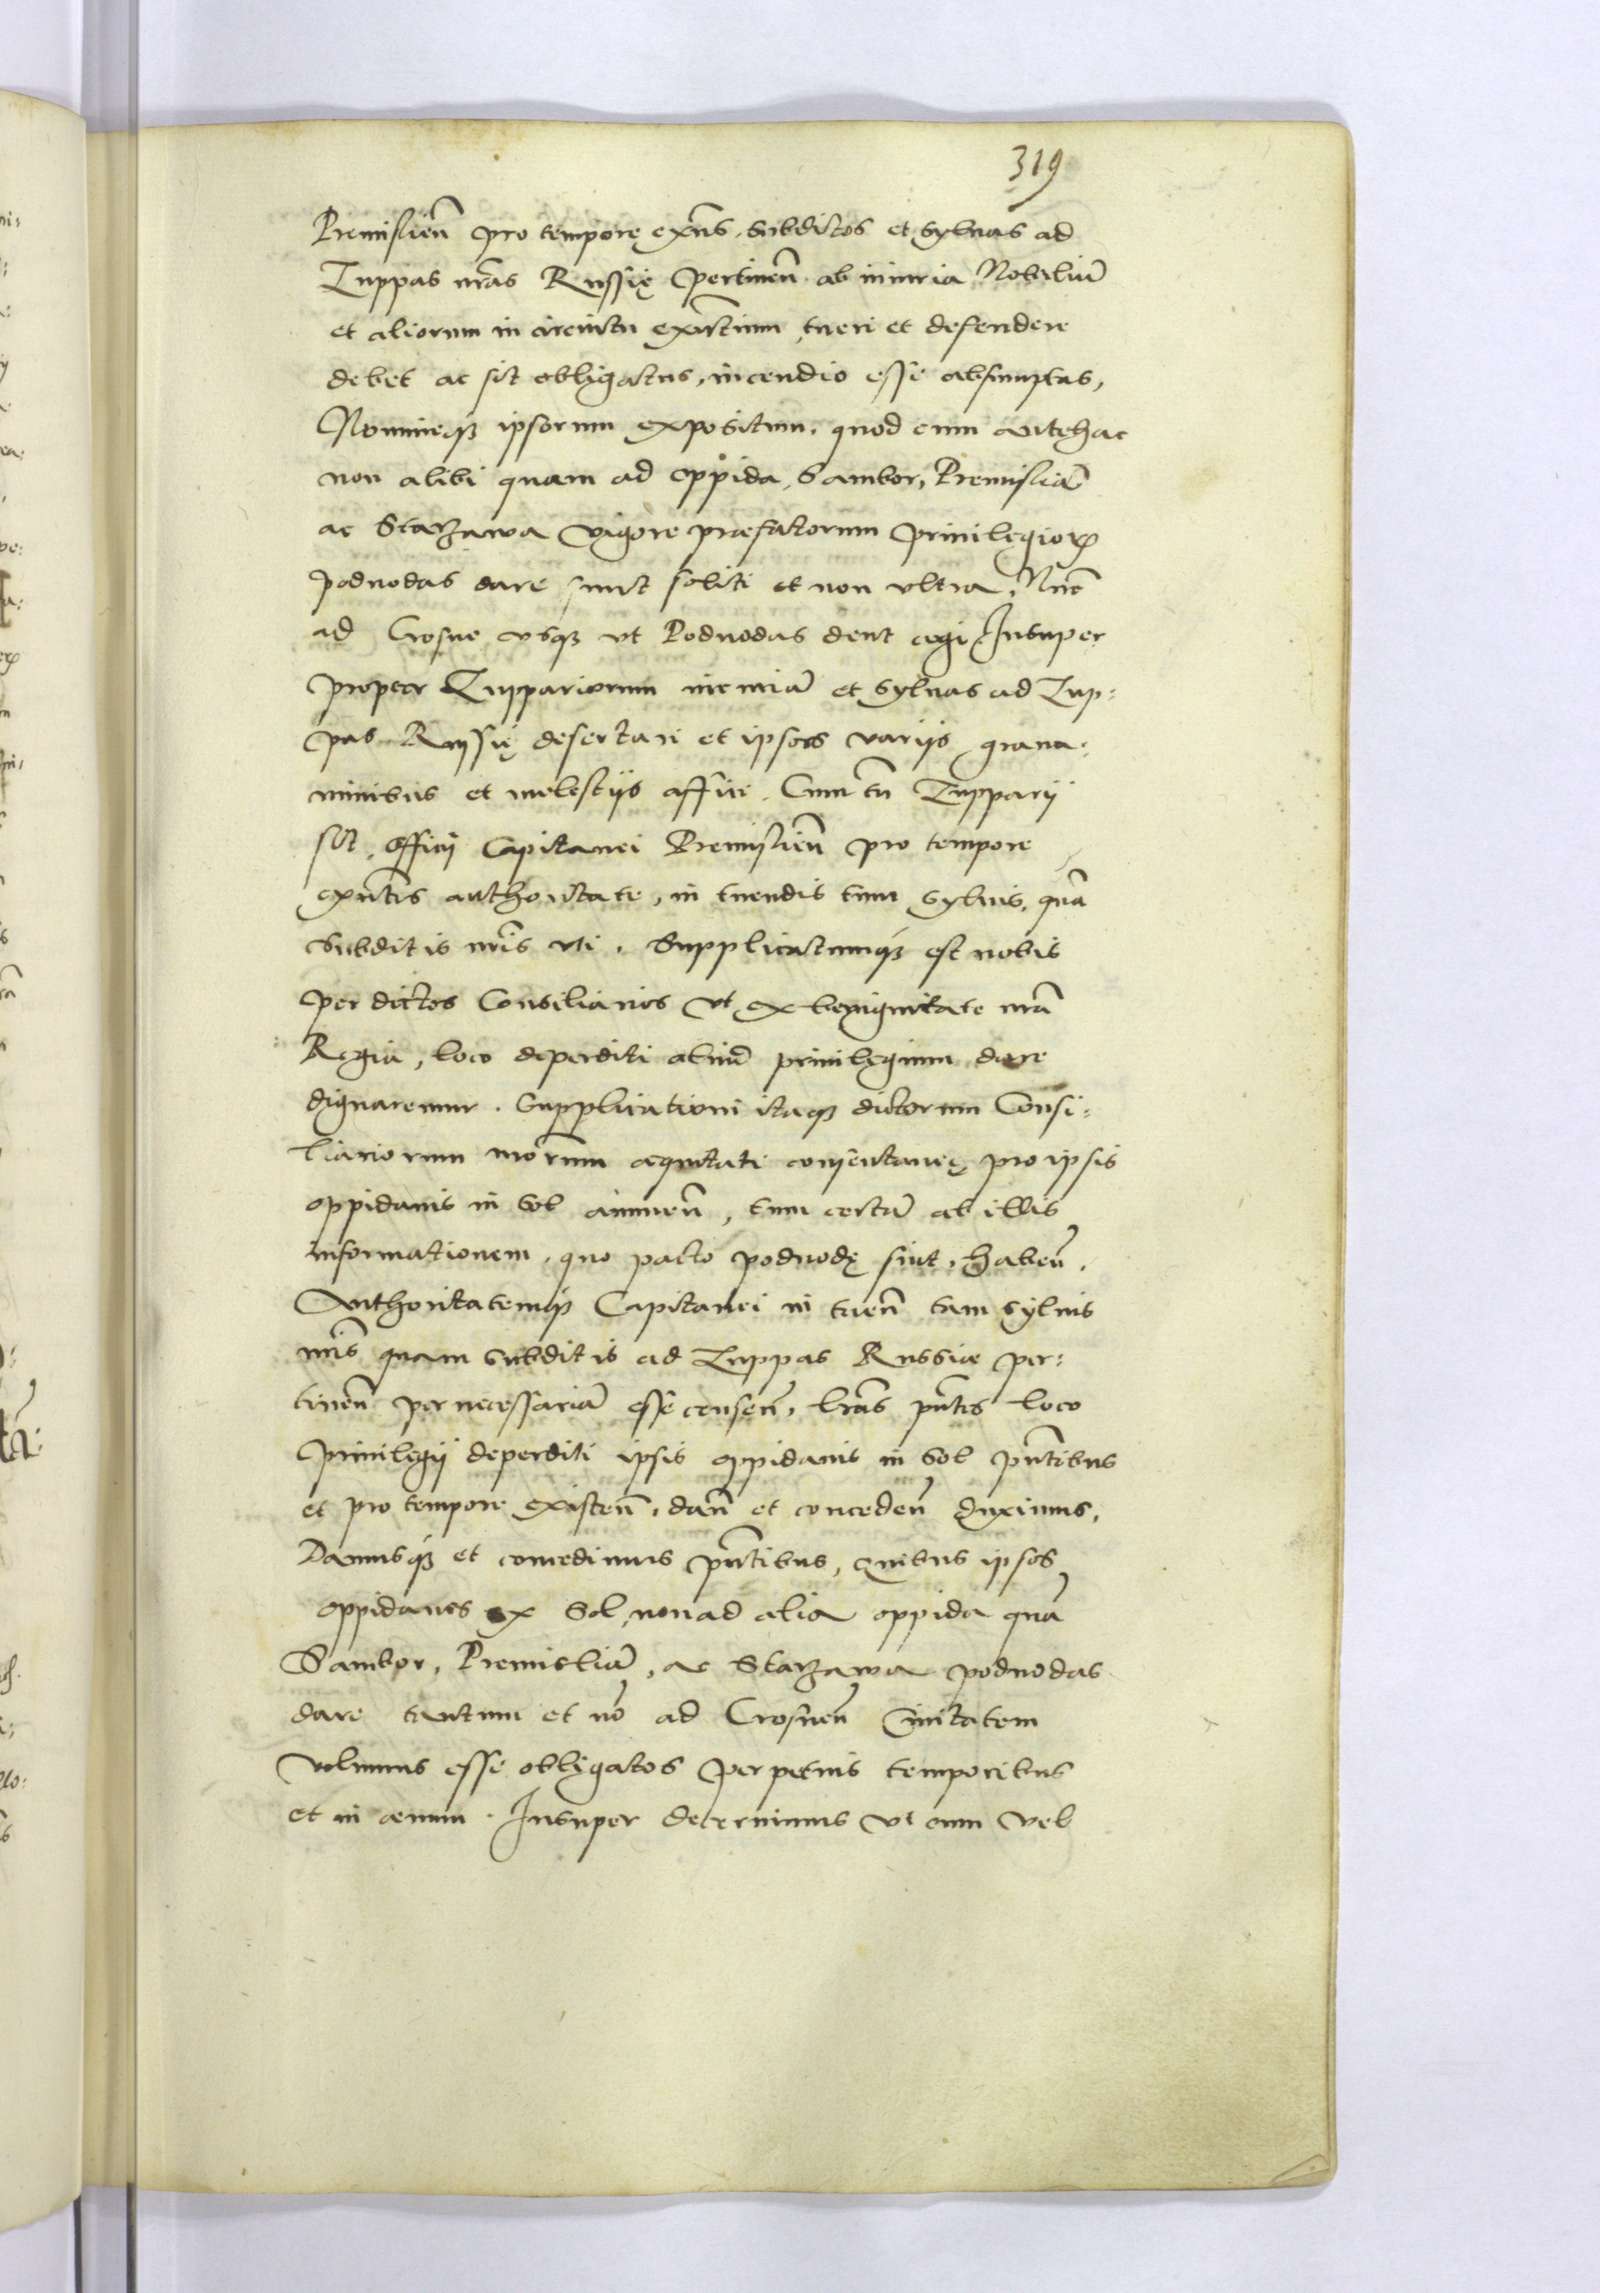 319
Premislien̄ pro tempore exn̄s, Subditos et Sylvas ad
Zuppas nr̄as Russię pertinen̄ ab iniuria Nobiliū
et aliorum in circuitu existium, tueri et defendere
debet ac sit obligatus, incendio esse absumptas,
Nomineqꝫ ipsorum expositum, quod cum antehac
non alibi quam ad oppida, Sambor, Premisliā
ac Starzawa vigore præfatorum privilegioꝝ
podvodas dare sunt soliti et non ultra, Nūc
ad Crosne usqꝫ ut Podvodas dent cogi Insuper
propter Zuppariorum incuriā et Sylvas ad Zup:
pas Russię desertari et ipsos varijs grava:
minibus et molestijs affici. Cum tn̄ Zupparij
sit, officij Capitanei Premislien̄ pro tempore
exn̄tis authoritate, in tuendis tum Sylvis, quā
Subditis nr̄is uti. Supplicatumqꝫ est nobis
per dictos Consiliarios ut ex benignitate nrā
Regia, loco deperditi aliud privilegium dare
dignaremur. Supplicationi itaqꝫ dictorum Consi:
liariorum nr̄orum aequitati consentaneę pro ipsis
oppidanis in Sol annuen̄, tum certā ab illis
informationem, quo pacto podvodę sint, haben̄,
Authoritatemqꝫ Capitanei in tuen̄ tam Sylvis
nr̄is quam Subditis ad Zuppas Russiæ per:
tinen̄ pernecessariā esse censen̄, lr̄as pn̄tes loco
Privilegij deperditi ipsis oppidanis in Sol pn̄tibus
et pro tempore existen̄, dan̄ et conceden̄ duximus,
Damusqꝫ et concedimus pn̄tibus, Quibus ipsos
oppidanos ex Sol, non ad alia oppida quā
Sambor, Premisliā, ac Starzawa podvodas
dare tantum et nō ad Crosnen̄ Civitatem
volumus esse obligatos perpetuis temporibus
et in ævum. Insuper decernimus ut cum vel